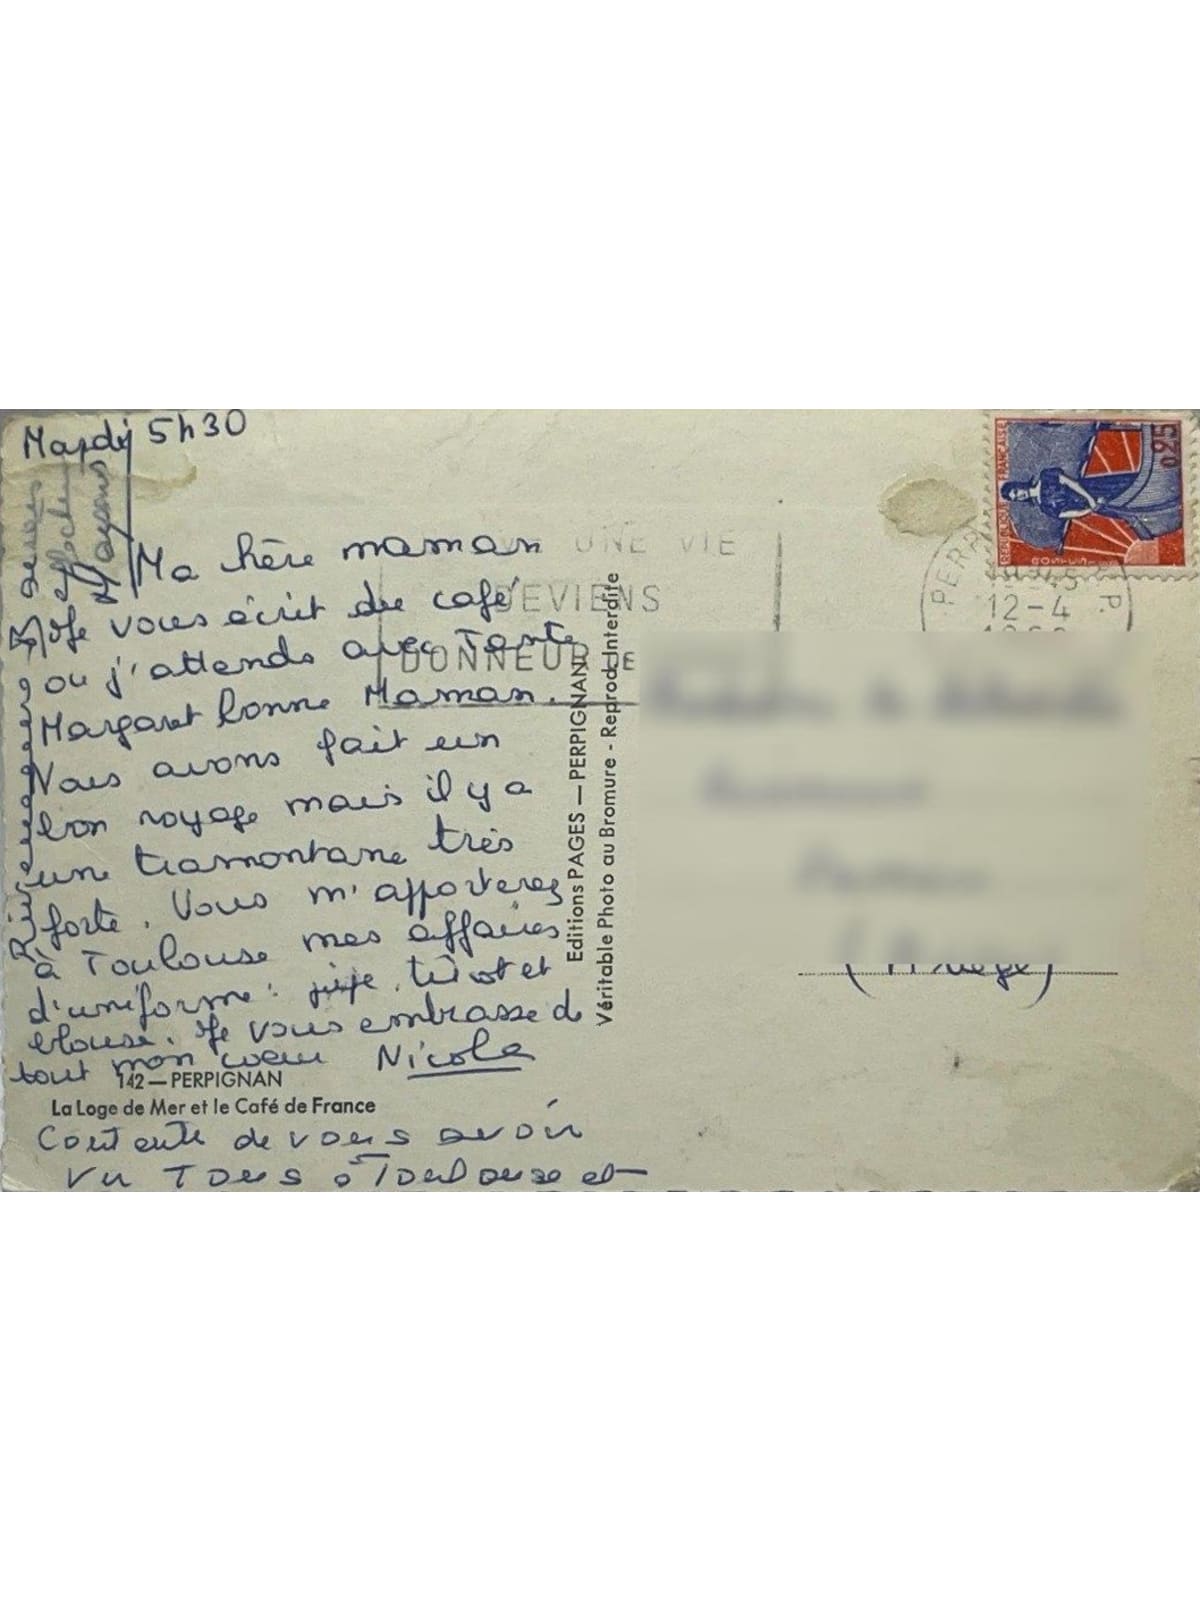 Mardi 5h30
Ma hère maman
Je vous écrit du café
ou j'attends avec Tante
Margaret bonne Maman.
Nous avons fait un
bon voyage mais il y a
une tramontane très
forte. Vous m'apporterez
à Toulouse mes affaires
d'uniforme: jupe, tricot et
blouse. Je vous embrasse de
tout mon coeur Nicole
142 — PERPIGNAN
La Loge de Mer et le Café de France
Contente de vous avoir
vu Tous à Toulouse et
Editions PAGES — PERPIGNAN
Véritable Photo au Bromure - Reprod. Interdite
UNE VIE
DEVIENS
DONNEUR DE
REPUBLIQUE FRANÇAISE
0,25
POSTES
12-4
(Ariège)